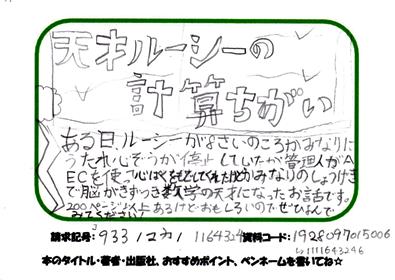 天才ルーシーの
計算ちがい
ある日、ルーシーが8さいのころかみなりに
うたれ心ぞうが停止していたが管理人がA
ECを使って
で脳がきずつき数学の天才になったお話です。
200ページ以上あるけどおもしろいのでぜひよんで
みてください!
請求記号: 933 ノマカノ 1164324 資料コード: 1928097015006
1111643246
本のタイトル・著者・出版社、おすすめポイント、ペンネームを書いてね☆